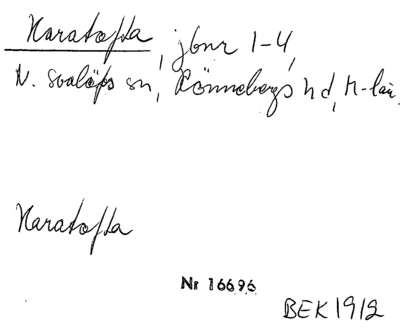 Karatofta, jbnr 1-4,
N. Svalöfs sn, Rönnebergs hd, M-län.
Karatofta
Nr 16696
BEK 1912